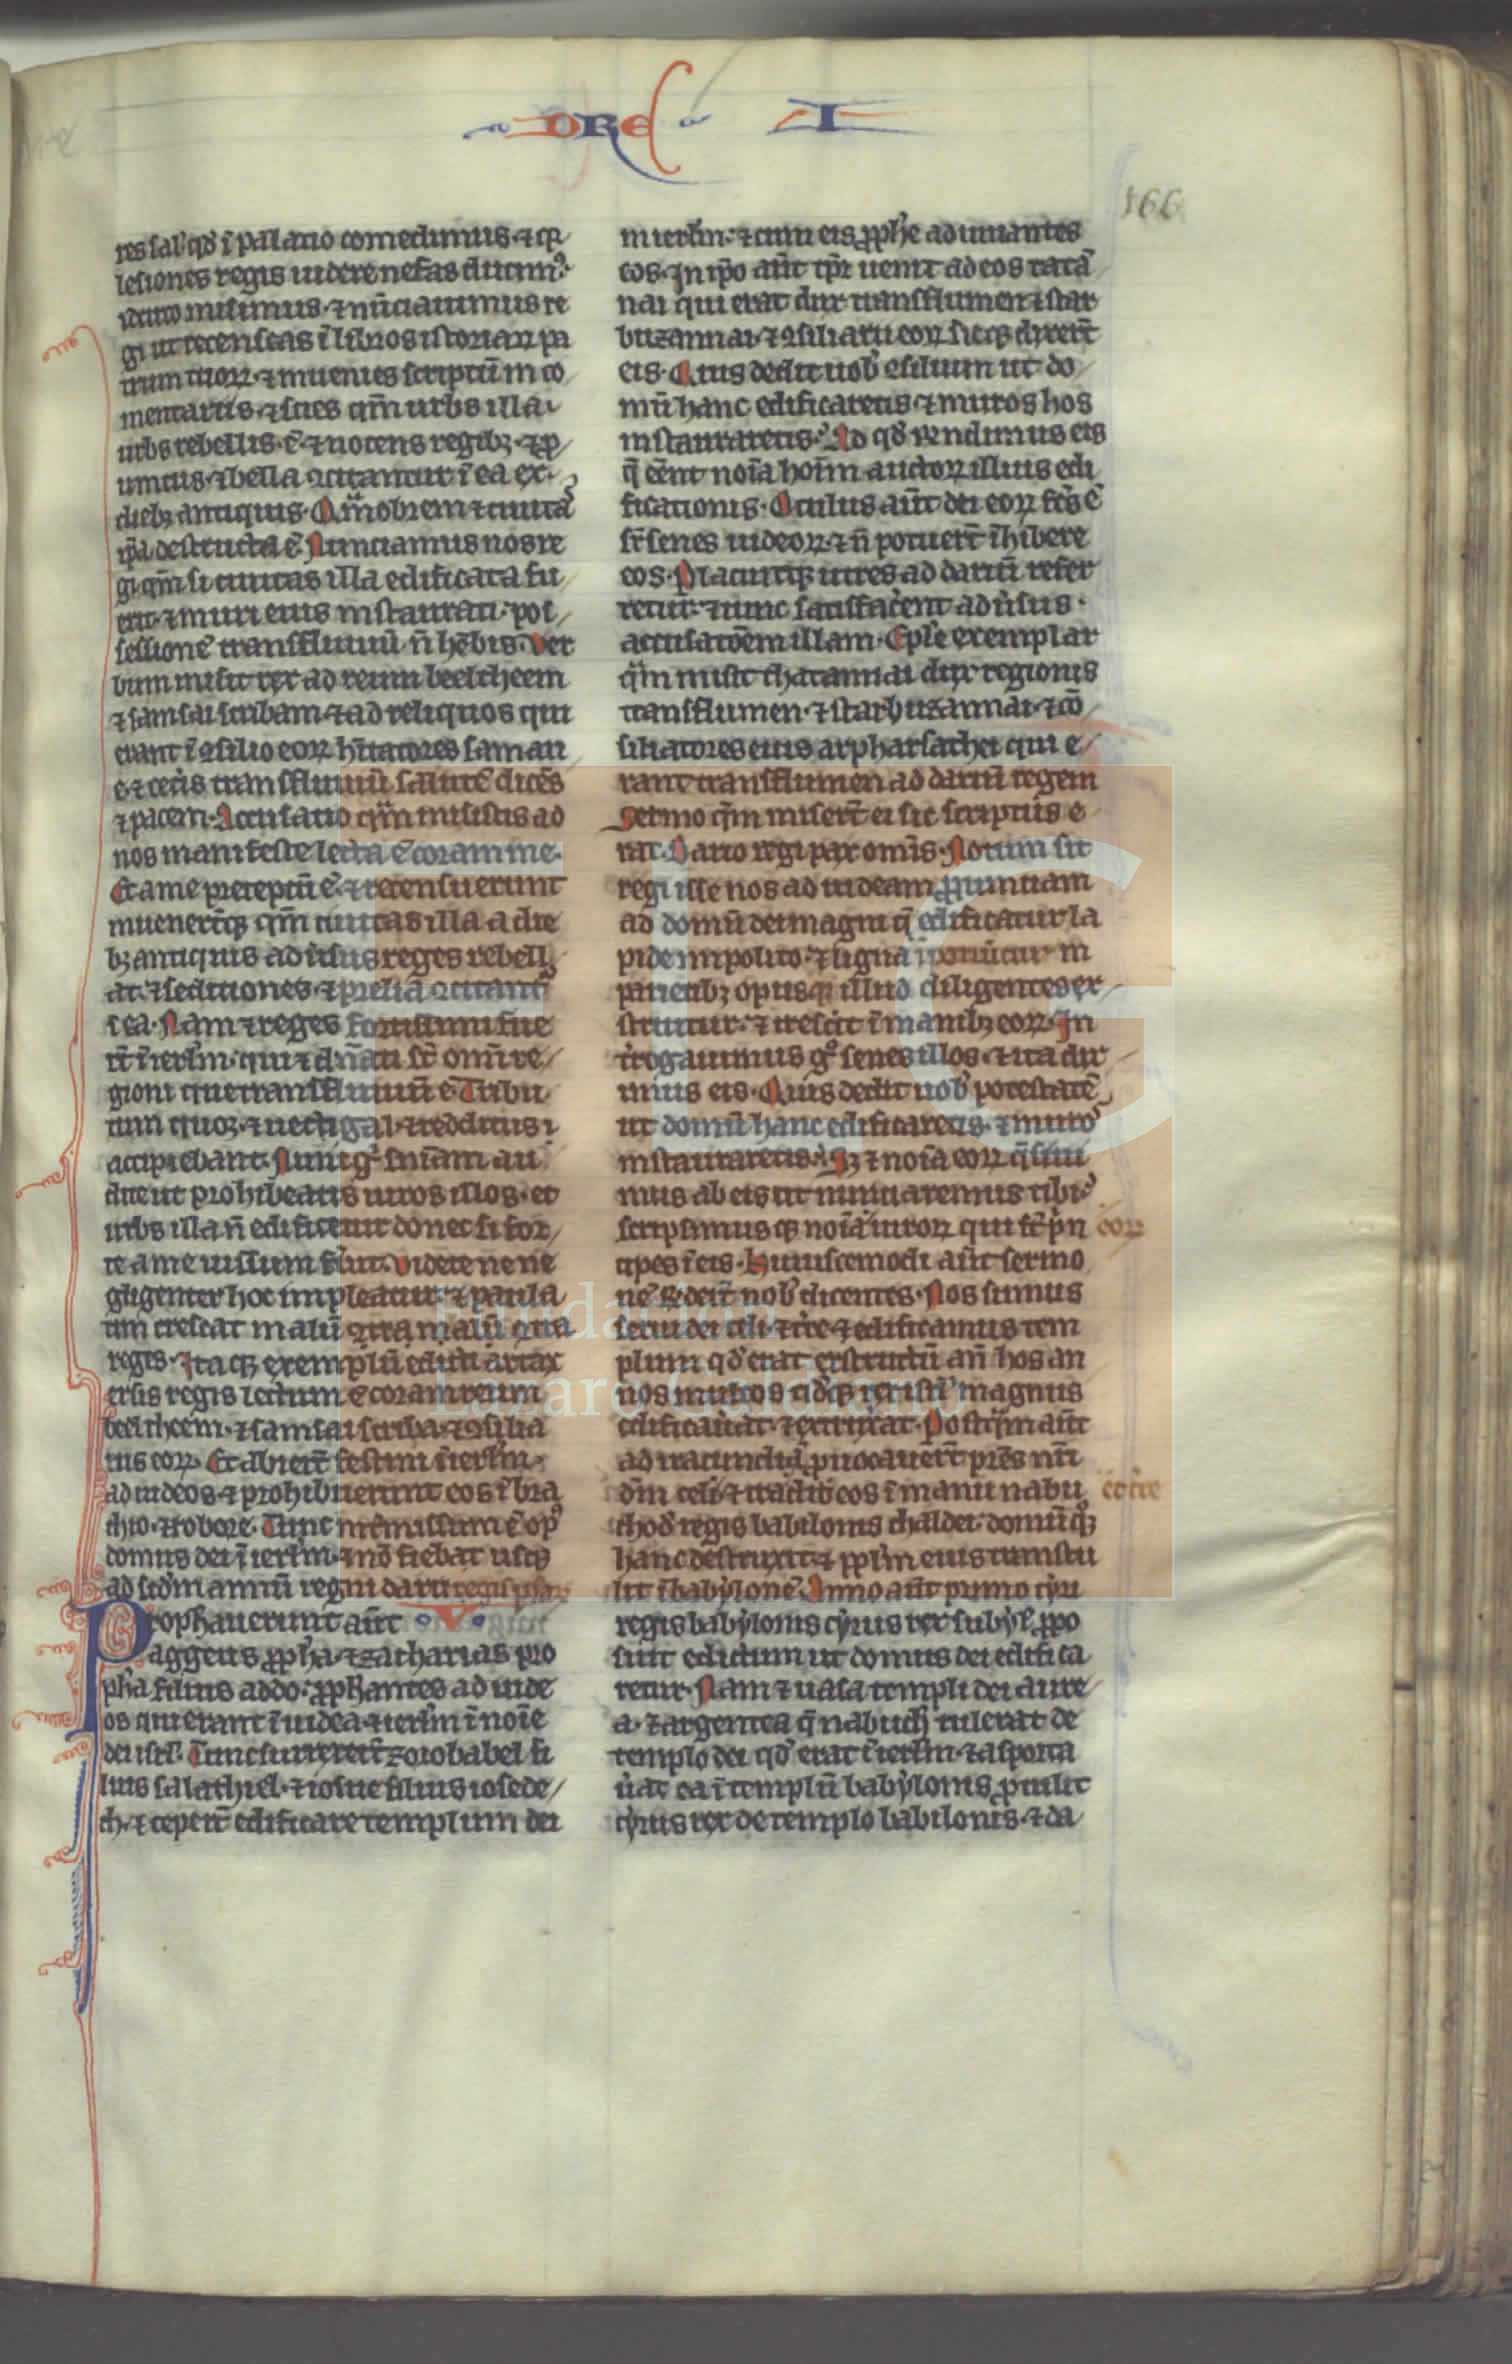 DRE I
166
res sal' qd' ī palatio comedimus ⁊ q̄
lesiones regis uidere nefas ducim⁹
iccirco misimus ⁊ nūciauimus re
gi ut recenseas ī libros istoriaꝝ pa
trum tuoꝝ ⁊ inuenies scriptū in co
mentariis ⁊ scies qm̄ urbs illa
urbs rebellis ē ⁊ nocens regibꝫ ⁊ ꝓ
uinciis ⁊ bella ꝯcitantur ī ea ex
diebꝫ antiquis Quā obrem ⁊ ciuitas
ip̄a destructa ē Nunciamus nos re
gi qm̄ si ciuitas illa edificata fu
erit ⁊ muri eius instaurati pos
sessionē transfluuiū n̄ hēbis Ver
bum misit rex ad reum beeltheem
⁊ samsai scribam ⁊ ad reliquos qui
erant ī ꝯsilio eoꝝ hītatores samari
e ⁊ cet̄is transfluuiū salutē dicēs
⁊ pacem Accusatio quam misistis ad
nos manifeste lecta ē coram me
Et a me preceptū ē ⁊ recensuerunt
inuenerūtqꝫ qm̄ ciuitas illa a die
bꝫ antiquis aduersus reges rebell
at ⁊ seditiones ⁊ prelia ꝯcitant᷑
ī ea Nam ⁊ reges fortissimi fue
rt̄ ī ierlm̄ qui ⁊ dn̄ati st̄ omī re
gioni que transfluuiū ē Tribu
tum quoqꝫ ⁊ uectigal ⁊ redditus
accipiebant Nunc gͦ sn̄iam au
dite ut prohibeatis uiros illos et
urbs illa n̄ edificetur donec si for
te a me iussum fuerit Videte ne ne
gligenter hoc impleatur ⁊ paula
tim crescat malū ꝯtra
regis Itaqꝫ exemplū edicti artax
ersis regis lectum ē coram reum
beeltheem ⁊ samsai scriba ⁊ ꝯsilia
riis eoꝝ Et abiert̄ festini ī ierlm̄
ad iudeos ⁊ prohibuerunt eos ī bra
chio ⁊ robore Tunc intermissum ē op⁹
domus dei ī ierlm̄ ⁊ nō fiebat usqꝫ
ad scd̄m annū regni darii regis psaꝝ
Prophauerunt aūt V
aggeus ꝓph̄a ⁊ zacharias pro
ph̄a filius addo ꝓph̄antes ad iude
os qui erant ī iudea ⁊ ierlm̄ ī noīe
dei isrl̄ Tunc surrexert̄ zorobabel fi
lius salathiel ⁊ iosue filius iosede
ch ⁊ ceperūt edificare templum dei
in ierlm̄ ⁊ cum eis ꝓph̄e adiuuantes
eos In ip̄o aūt tp̄r uenit ad eos tata
nai qui erat dux transflumen ⁊ star
buzannai ⁊ ꝯsiliarii eoꝝ sicqꝫ dixert̄
eis Quis dedit uob' ꝯsilium ut do
mū hanc edificaretis ⁊ muros hos
instauraretis Ad qd' rendimus eis
q̄ eēnt noīa hoīm auctoꝝ illius edi
ficationis Oculus aūt dei eoꝝ fc̄s ē
sr̄ senes iudeoꝝ ⁊ n̄ potuert̄ īhibere
eos Placuitqꝫ ut res ad dariū refer
retur ⁊ tunc satisfacerent aduersus
accusatōem illam Epl'e exemplar
qm̄ misit thatannai dux regionis
transflumen ⁊ starbuzannai ⁊ cō
siliatores eius arpharsachei qui e
rant transflumen ad dariū regem
Sermo qm̄ misert̄ ei sic scriptus e
rat Dario regi pax omīs Notum sit
regi isse nos ad iudeam ꝓuinciam
ad domū dei magni q̄ edificatur la
pide impolito ⁊ ligna ponūtur in
parietibꝫ opusqꝫ illud diligenter ex
struitur ⁊ crescit ī manibꝫ eoꝝ In
t̄rogauimus gͦ senes illos ⁊ ita dix
imus eis Quis dedit uob' potestatē
ut domū hanc edificaretis ⁊ muros
instauraretis Sꝫ ⁊ noīa eoꝝ q̄siui
mus ab eis ut nuntiaremus tibi
scripsimusqꝫ noīa uiroꝝ qui st̄ pn̄ eoꝝ
cipes ī eis Huiuscemodi aūt sermo
nē rn̄dert̄ nob' dicentes Nos sumus
serui dei celi ⁊ tr̄e ⁊ edificamus tem
plum qd' erat exstructū an̄ hos an
nos multos qd'qꝫ rex isrl̄ magnus
edificauerat ⁊ exstruxerat Postqm̄ aūt
ad iracundiā ꝓuocauert̄ pr̄es nr̄i
dm̄ celi ⁊ tradidit eos ī manu nabu et tr̄e
chod' regis babilonis chaldei domūqꝫ
hanc destruxit ⁊ ppl̄m eius transtu
lit ī babylonē Anno aūt primo cyri
regis babylonis cyrus rex ꝓpo
suit edictum ut domus dei edifica
retur Nam ⁊ uasa templi dei aure
a ⁊ argentea q̄ nabuch tulerat de
templo dei qd' erat ī ierlm̄ ⁊ asporta
uerat ea ī templū babylonis ꝓtulit
cyrus rex de templo babilonis ⁊ da
FLG
Fundación
Lázaro Galdiano